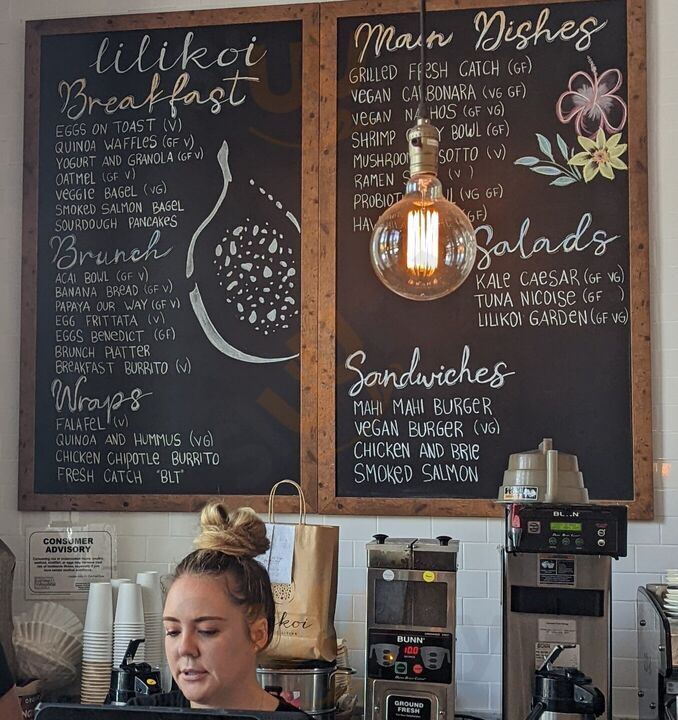 lilikoi
Breakfast
EGGS ON TOAST (V)
QUINOA WAFFLES (GF V)
YOGURT AND GRANOLA (GF V)
OATMEL (GF V)
VEGGIE BAGEL (VG)
SMOKED SALMON BAGEL
SOURDOUGH PANCAKES
Brunch
ACAI BOWL (GF V)
BANANA BREAD (GF V)
PAPAYA OUR WAY (GF V)
EGG FRITTATA (V)
EGGS BENEDICT (GF)
BRUNCH PLATTER
BREAKFAST BURRITO (V)
Wraps
FALAFEL (V)
QUINOA AND HUMMUS (VG)
CHICKEN CHIPOTLE BURRITO
FRESH CATCH "BLT"
Main Dishes
GRILLED FRESH CATCH (GF)
VEGAN CARBONARA (VG GF)
VEGAN NACHOS (GF VG)
SHRIMP BOWL (GF)
MUSHROOM RISOTTO (V)
RAMEN (V)
(VG GF)
GF)
Salads
KALE CAESAR (GF VG)
TUNA NICOISE (GF )
LILIKOI GARDEN (GF VG)
Sandwiches
MAHI MAHI BURGER
VEGAN BURGER (VG)
CHICKEN AND BRIE
SMOKED SALMON
CONSUMER
ADVISORY
lilikoi
BUNN
10.0
GROUND
FRESH
BUNN